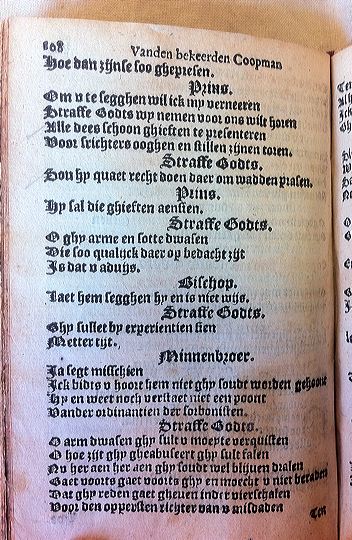 108
Vanden bekeerden Coopman
Hoe dan zijnse soo ghepresen.
Prins.
Om v te segghen wil ick my verneeren
Straffe Godts wy nemen voor ons wilt horen
Alle dees schoon ghiesten te presenteren
Voor srichters ooghen en stillen zijnen toren.
Straffe Godts.
Sou hy quaet recht doen daer om wadden prasen.
Prins.
Hy sal die ghiesten aensien.
Straffe Godts.
O ghy arme en sotte dwasen
Die soo qualijck daer op bedacht zijt
Is dat v aduijs.
Bischop.
Laet hem segghen hy en is niet wijs.
Straffe Godts.
Ghy sullet by experientien sien
Metter tijt.
Minnenbroer.
Ja segt misschien
Ick bidts v hoort hem niet ghy soudt worden gehoont
Hy en weet noch verstaet niet een poont
Vander ordinantien der sorbonisten.
Straffe Godts.
O arm dwasen ghy sult v moepte verquisten
O hoe zijt ghy gheabuseert ghy sult falen
Nu her aen her aen ghy soudt wel blijuen dralen
Gaet voorts gaet voorts ghy en moecht v niet beraden
Dat ghy reden gaet gheuen inder vierschalen
Voor den oppersten richter van v misdaden